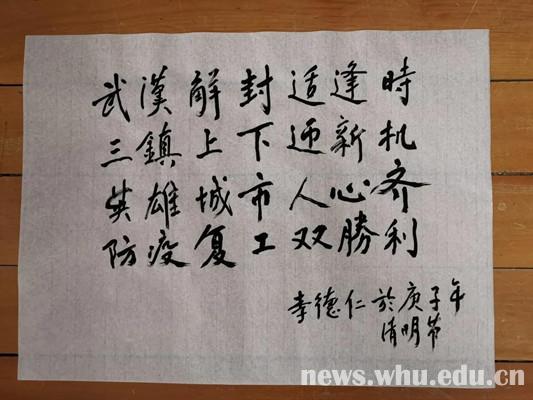 武漢解封适逢時
三鎮上下迎新机
英雄城市人心齐
防疫复工双勝利
李德仁於庚子年
清明节
news.whu.edu.cn